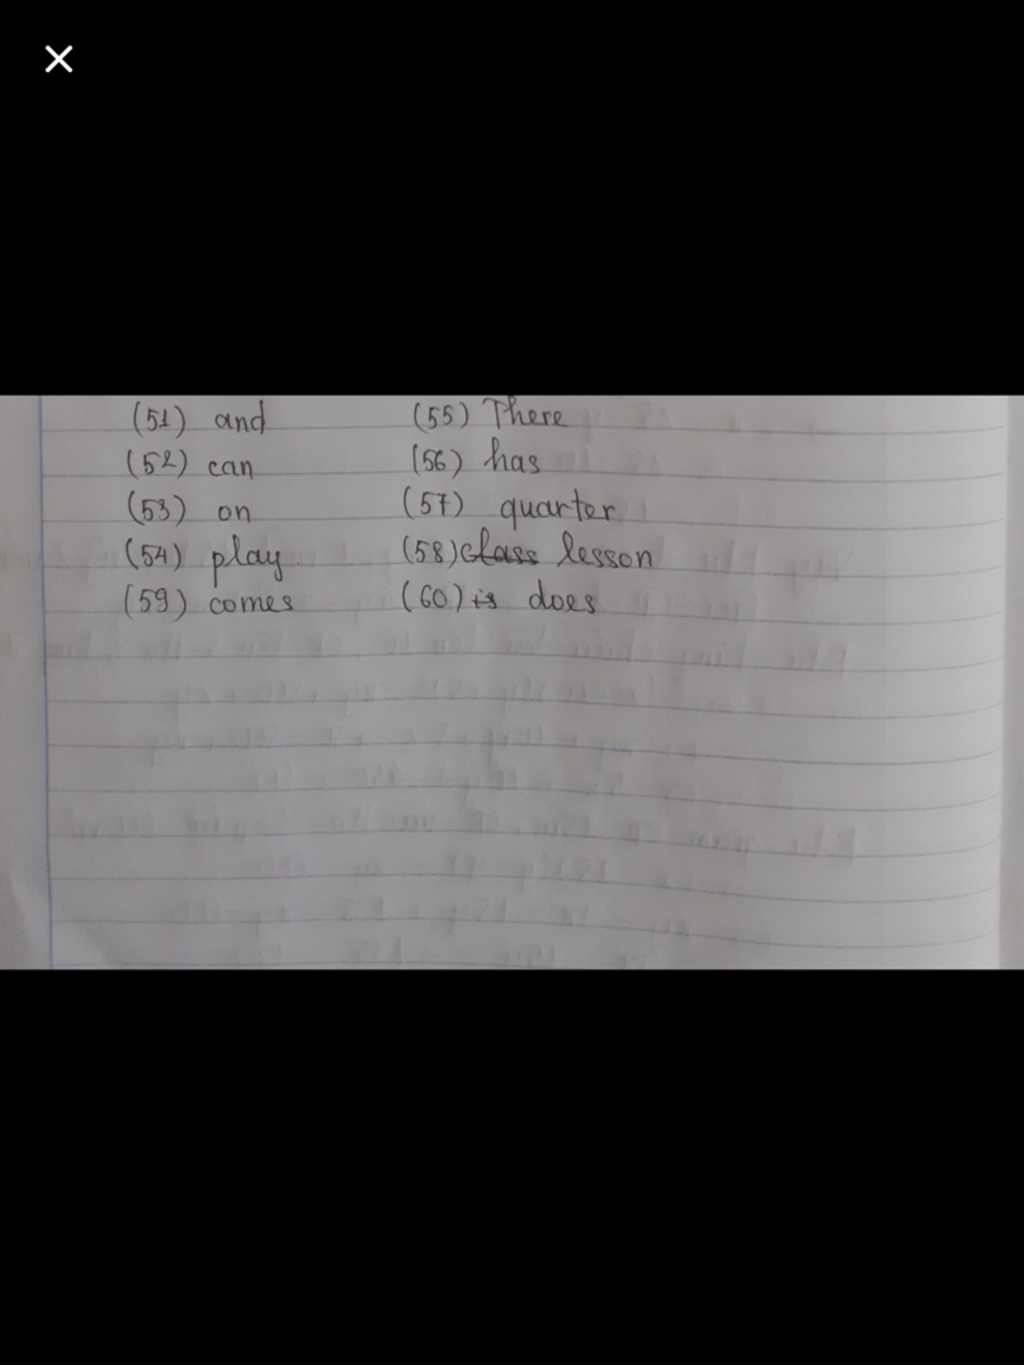 (51) and (55) There
(52) can (56) has
(53) on (57) quarter
(54) play (58) class lesson
(59) comes (60) is does